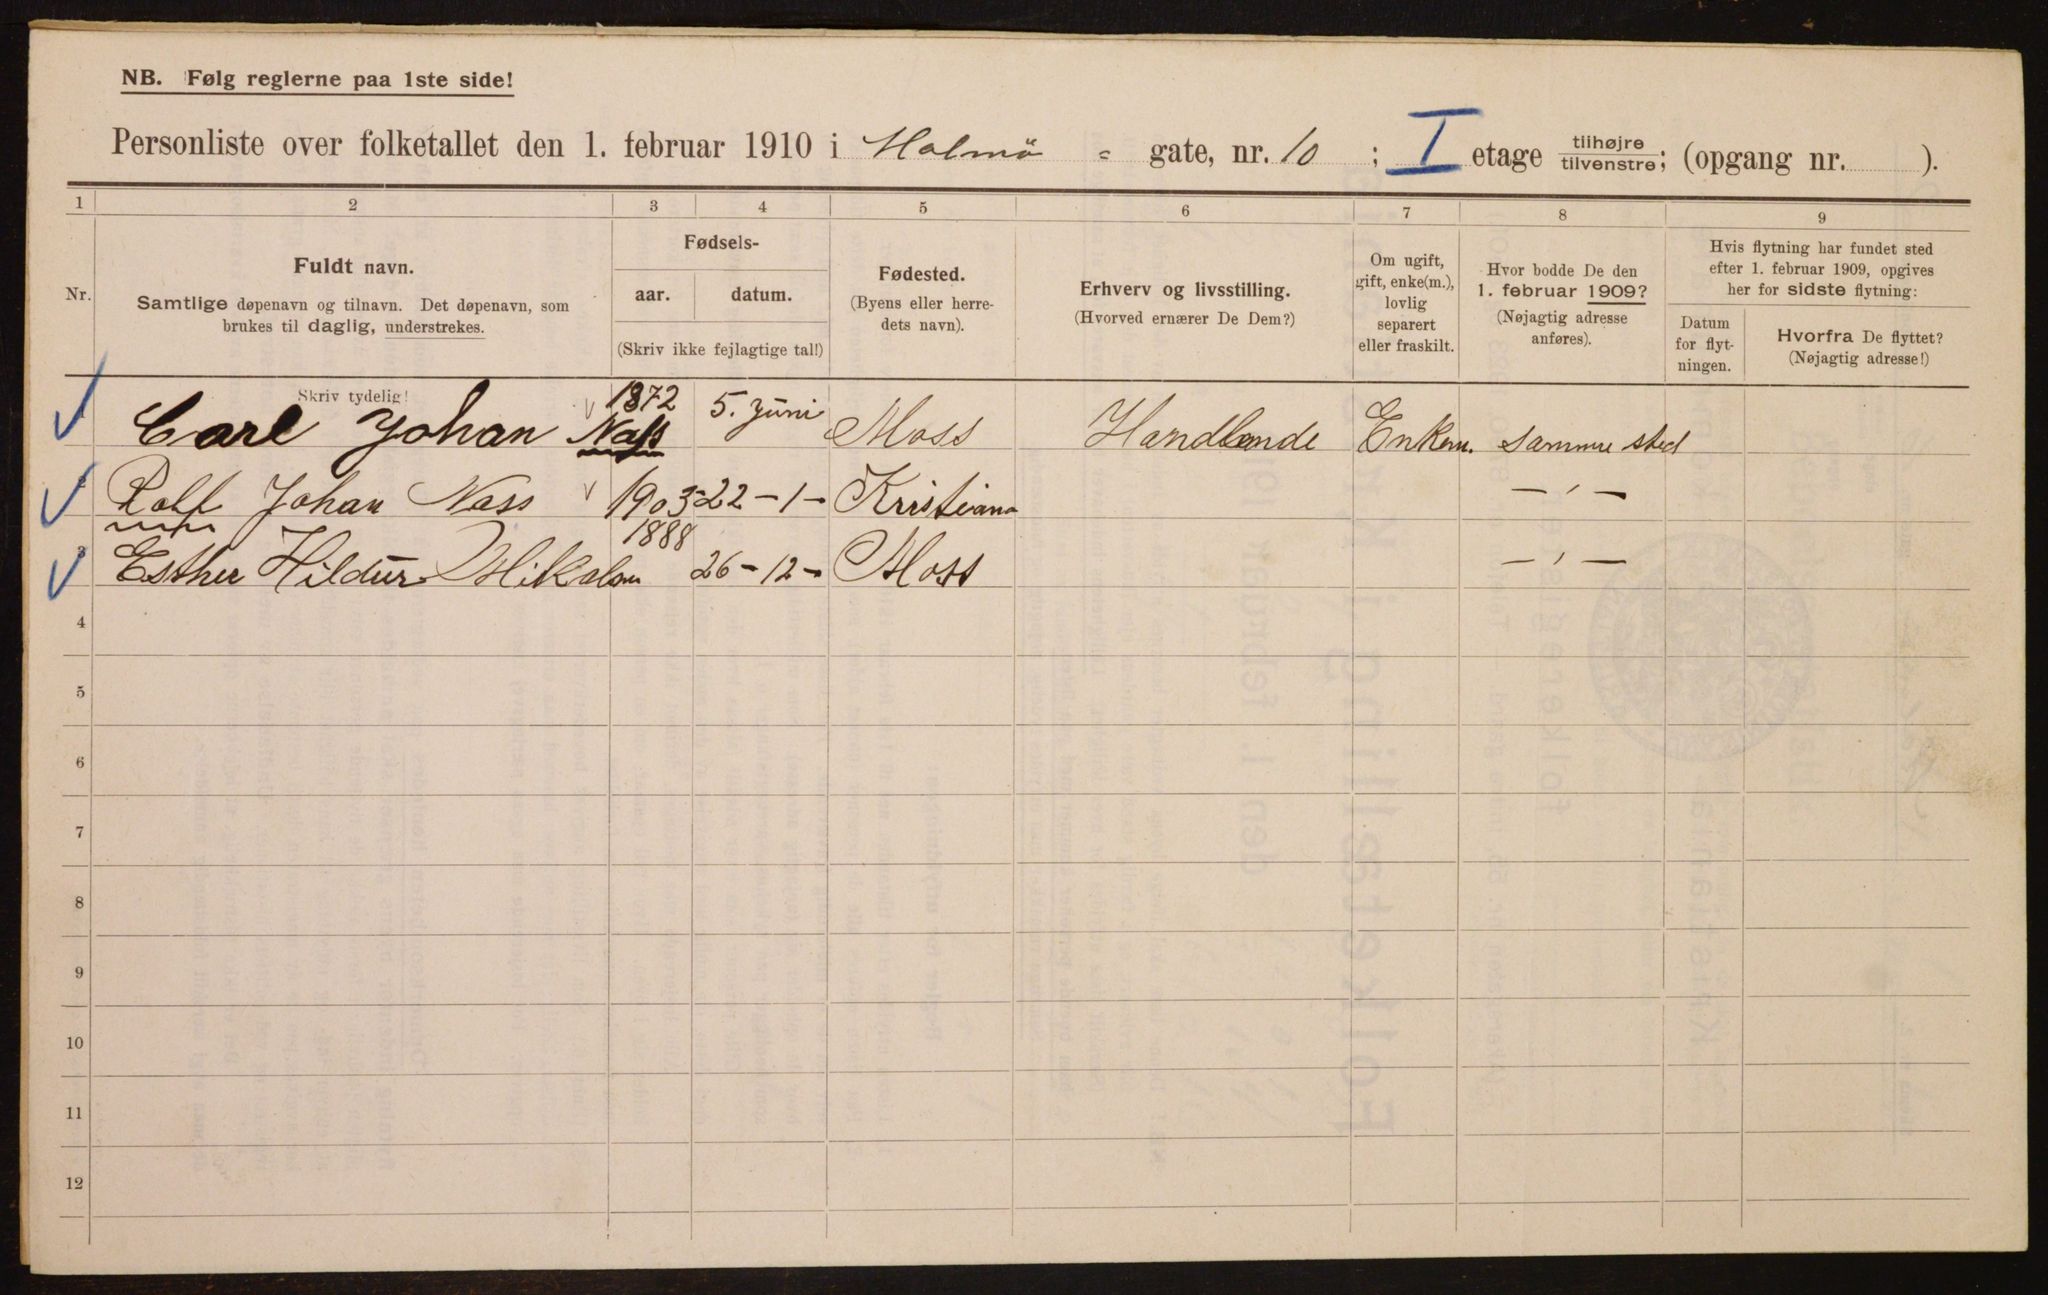 NB. Følg reglerne paa 1ste side!
Personliste over folketallet den 1. februar 1910 i Malmö - gate, nr. 10 ; I etage tilhøjre tilvenstre; (opgang nr. ).
1 2 3 4 5 6 7 8 9
Nr.
Fuldt navn.
Samtlige døpenavn og tilnavn. Det døpenavn, som
brukes til daglig, understrekes.
Fødsels-
aar. datum.
(Skriv ikke fejlagtige tal!)
Fødested.
(Byens eller herre-
dets navn).
Erhverv og livsstilling.
(Hvorved ernærer De Dem?)
Om ugift,
gift, enke(m.),
lovlig
separert
eller fraskilt.
Hvor bodde De den
1. februar 1909?
(Nøjagtig adresse
anføres).
Hvis flytning har fundet sted
efter 1. februar 1909, opgives
her for sidste flytning:
Datum
for flyt-
ningen.
Hvorfra De flyttet?
(Nøjagtig adresse!)
Skriv tydelig!
1 Carl Johan Nass 1872 5. Juni Moss Handlende Enkem. samme sted
2 Rolf Johan Nass 1903 22-1- Kristiana -"-
3 Esther Hildur Mikalsen 1888 26-12- Moss -"-
4
5
6
7
8
9
10
11
12